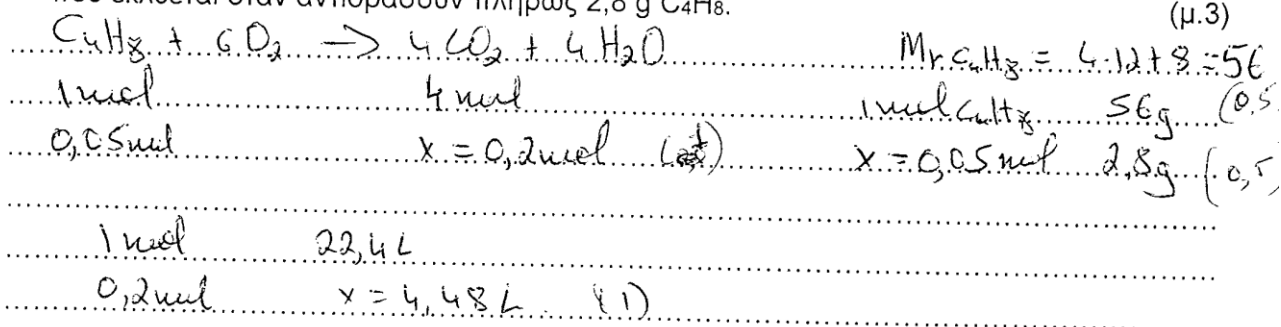 που εκλύεται όταν αντιδράσουν πλήρως 2,8 g C₄H₈.
(μ.3)
C₄H₈ + 6O₂ -> 4CO₂ + 4H₂O Mr C₄H₈ = 4·12+8=56
1mol 4mol 1mol C₄H₈ 56g (0,5
0,05mol x=0,2mol x=0,05mol 2,8g (0,5)
1mol 22,4L
0,2mol x=4,48L (1)